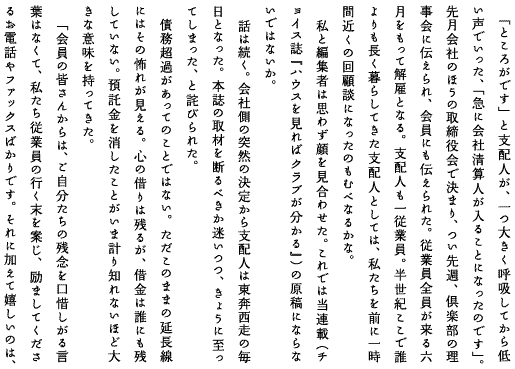 『ところがです』と支配人が、一つ大きく呼吸してから低
い声でいった、「急に会社清算人が入ることになったのです」。
先月会社のほうの取締役会で決まり、つい先週、倶楽部の理
事会に伝えられ、会員にも伝えられた。従業員全員が来る六
月をもって解雇となる。支配人も一従業員。半世紀ここで誰
よりも長く暮らしてきた支配人としては、私たちを前に一時
間近くの回顧談になったのもむべなるかな。
私と編集者は思わず顔を見合わせた。これでは当連載（チ
ョイス誌『ハウスを見ればクラブが分かる』）の原稿にならな
いではないか。
話は続く。会社側の突然の決定から支配人は東奔西走の毎
日となった。本誌の取材を断るべきか迷いつつ、きょうに至っ
てしまった、と詫びられた。
債務超過があってのことではない。ただこのままの延長線
にはその怖れが見える。心の借りは残るが、借金は誰にも残
していない。預託金を消したことがいま計り知れないほど大
きな意味を持ってきた。
「会員の皆さんからは、ご自分たちの残念を口惜しがる言
葉はなくて、私たち従業員の行く末を案じ、励ましてくださ
るお電話やファックスばかりです。それに加えて嬉しいのは、